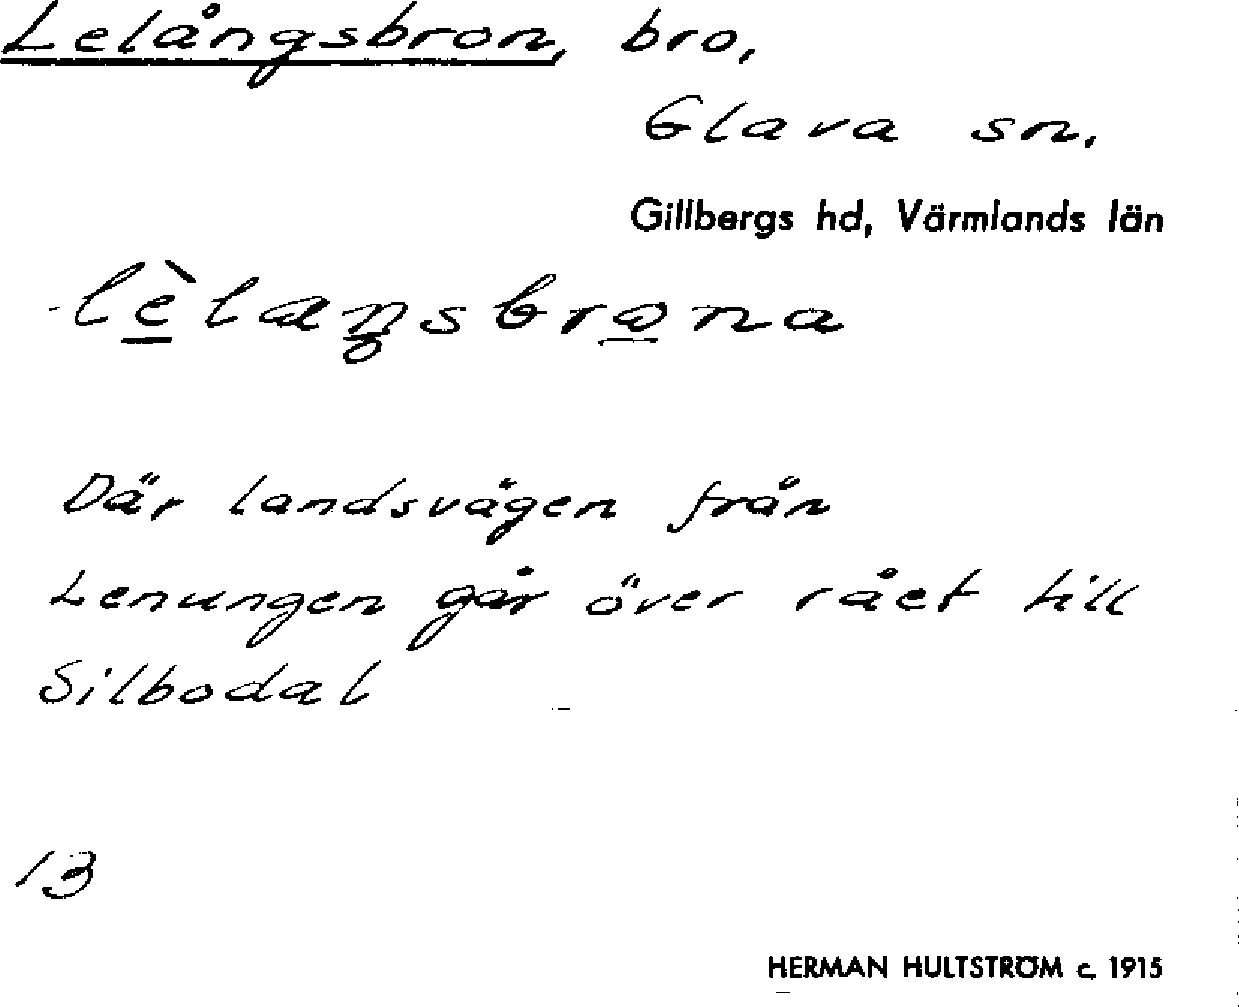 Lelångsbron, bro,
Glava sn.
Gillbergs hd, Värmlands län
lèlaŋsbrona
Där landsvägen från
Lenungen går över rået till
Silbodal
13
HERMAN HULTSTRÖM c. 1915